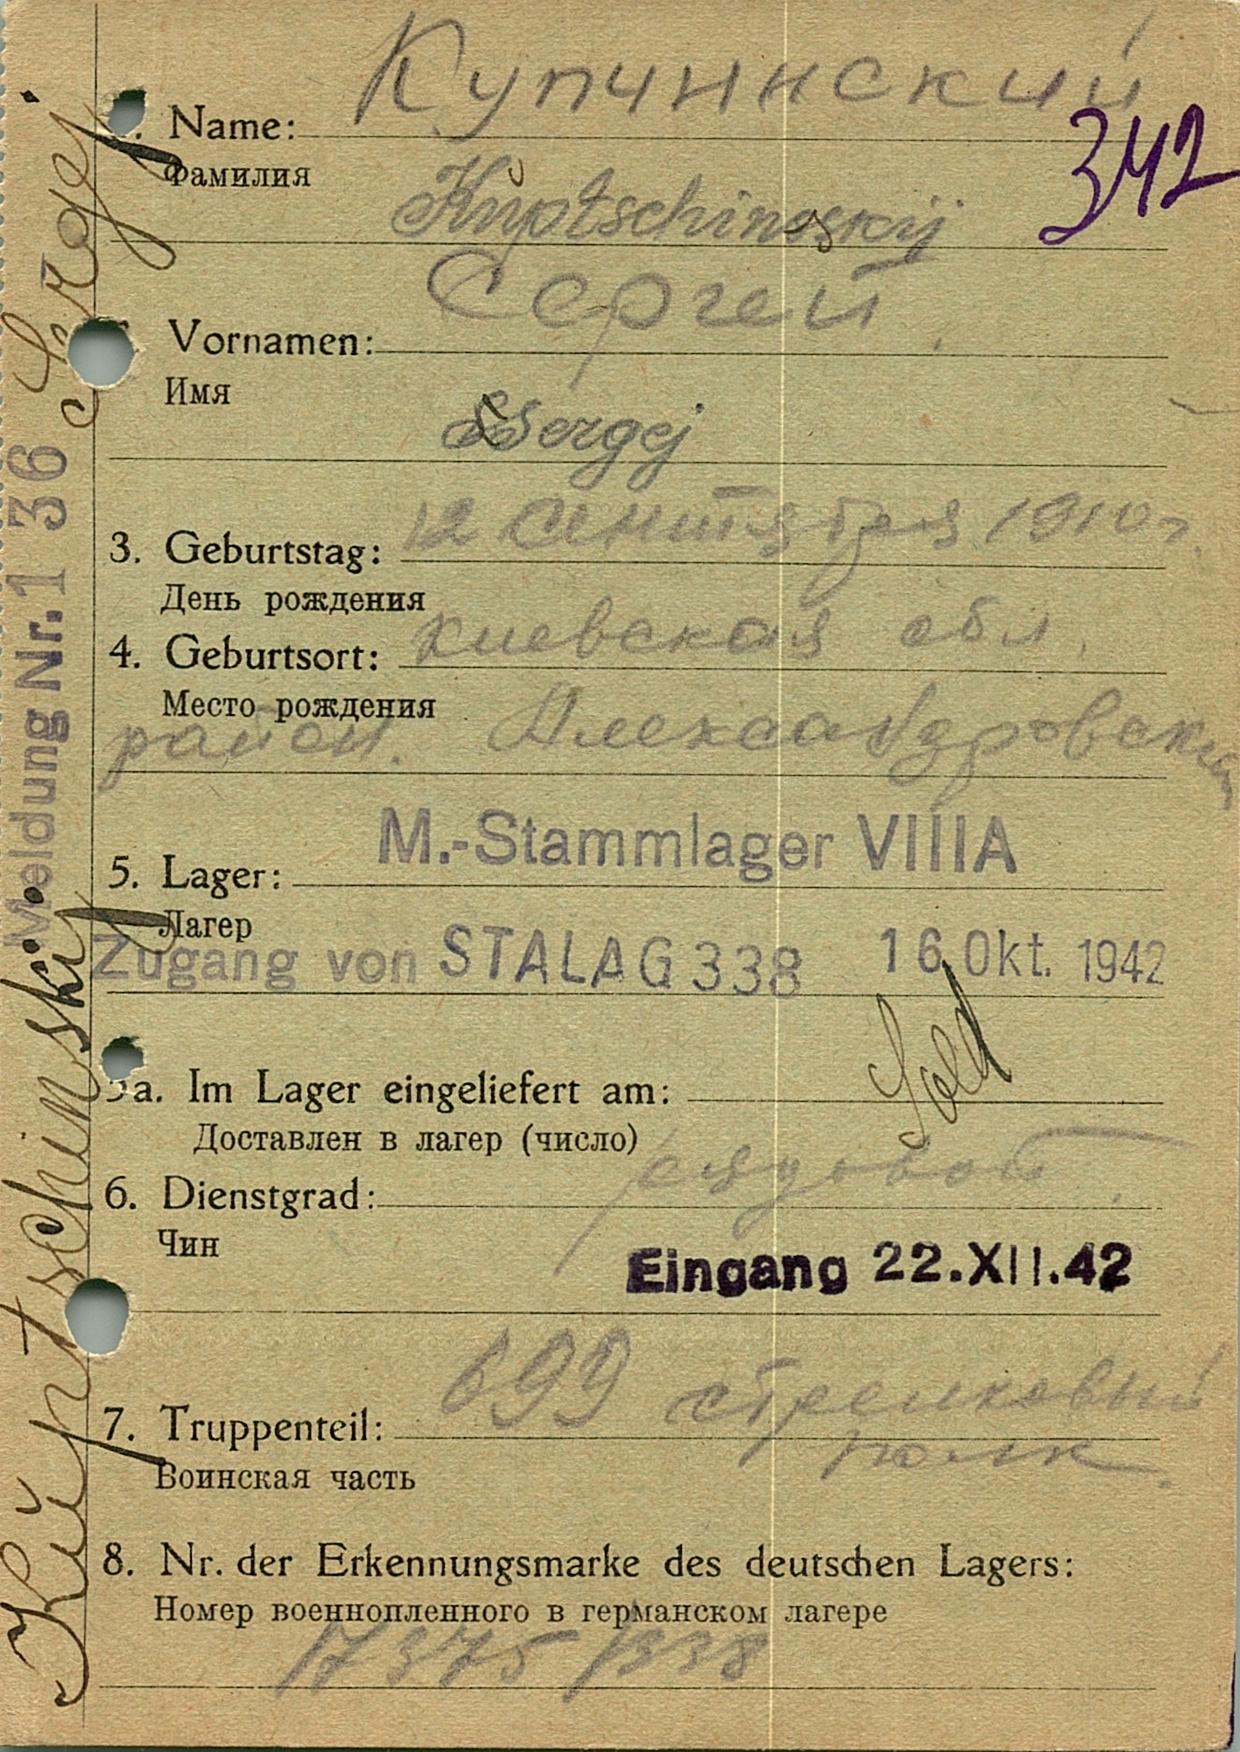 Купчинский
Name:
342
Фамилия
Kuptschinskij
Сергей
Vornamen:
Имя
Sergej
12 сентября 1910 г
3. Geburtstag:
День рождения
4. Geburtsort: киевская обл.
Место рождения
район. Александровский
M.-Stammlager VIIIA
5. Lager:
Лагер
Zugang von STALAG 338 16. Okt. 1942
Sold
5a. Im Lager eingeliefert am:
Доставлен в лагер (число)
рядовой
6. Dienstgrad:
Чин
Eingang 22.XII.42
699 стрелковый
7. Truppenteil:
полк
Воинская часть
8. Nr. der Erkennungsmarke des deutschen Lagers:
Номер военнопленного в германском лагере
17375/338
Kuptschinskij Sergej
Meldung Nr. 136